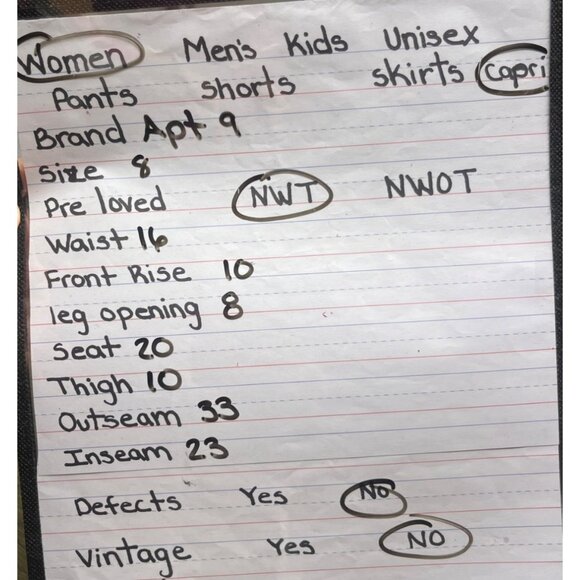 Women Men's Kids Unisex
Pants shorts skirts Capri
Brand Apt 9
Size 8
Pre loved NWT NWOT
Waist 16
Front Rise 10
leg opening 8
Seat 20
Thigh 10
Outseam 33
Inseam 23
Defects Yes No
Vintage Yes NO